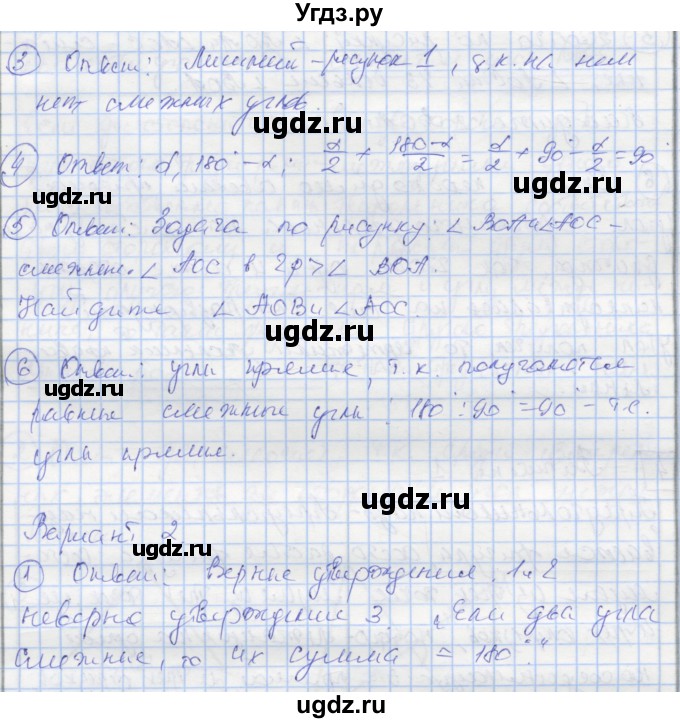 Угдз.ру
3 Ответ: Лишний – рисунок 1, т.к. на нем
нет смежных углов.
ugdz.ru
4 Ответ: α, 180° – α; α/2 + 180-α/2 = α/2 + 90° – α/2 = 90°
ugdz.ru
ugdz.ru
5 Ответ: Задача по рисунку: ∠ BOA и ∠AOC –
смежные. ∠ AOC в 2р > ∠ BOA.
Найдите ∠ AOB и ∠ AOC.
ugdz.ru
6 Ответ: углы прямые, т.к. получаются
ugdz.ru
равные смежные углы: 180° : 90° = 90° – т.е.
углы прямые.
ugdz.ru
Вариант 2.
ugdz.ru
1 Ответ: Верные утверждения 1 и 2
неверно утверждение 3. „Если два угла
смежные, то их сумма = 180°."